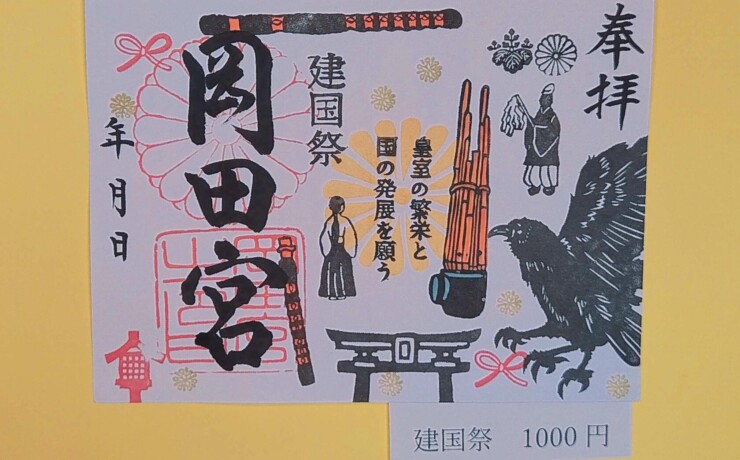 奉拝
建国祭
皇室の繁栄と
国の発展を願う
岡田宮
年月日
建国祭 1000円